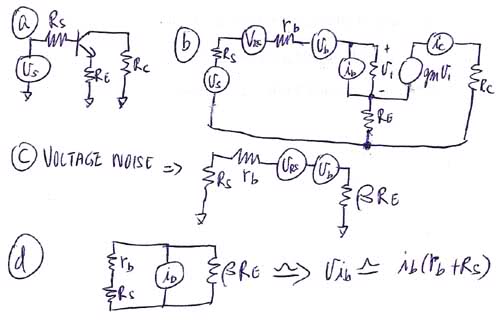 a
Rs
Vs
RE
RC
b
Rs
VRS
rb
Vb
ib
+
V1
-
ic
gmV1
RC
Vs
RE
C VOLTAGE NOISE ⇒
Rs
rb
VRS
Vb
βRE
d
rb
Rs
ib
βRE ≃ ⇒ Vib ≃ ib(rb+Rs)